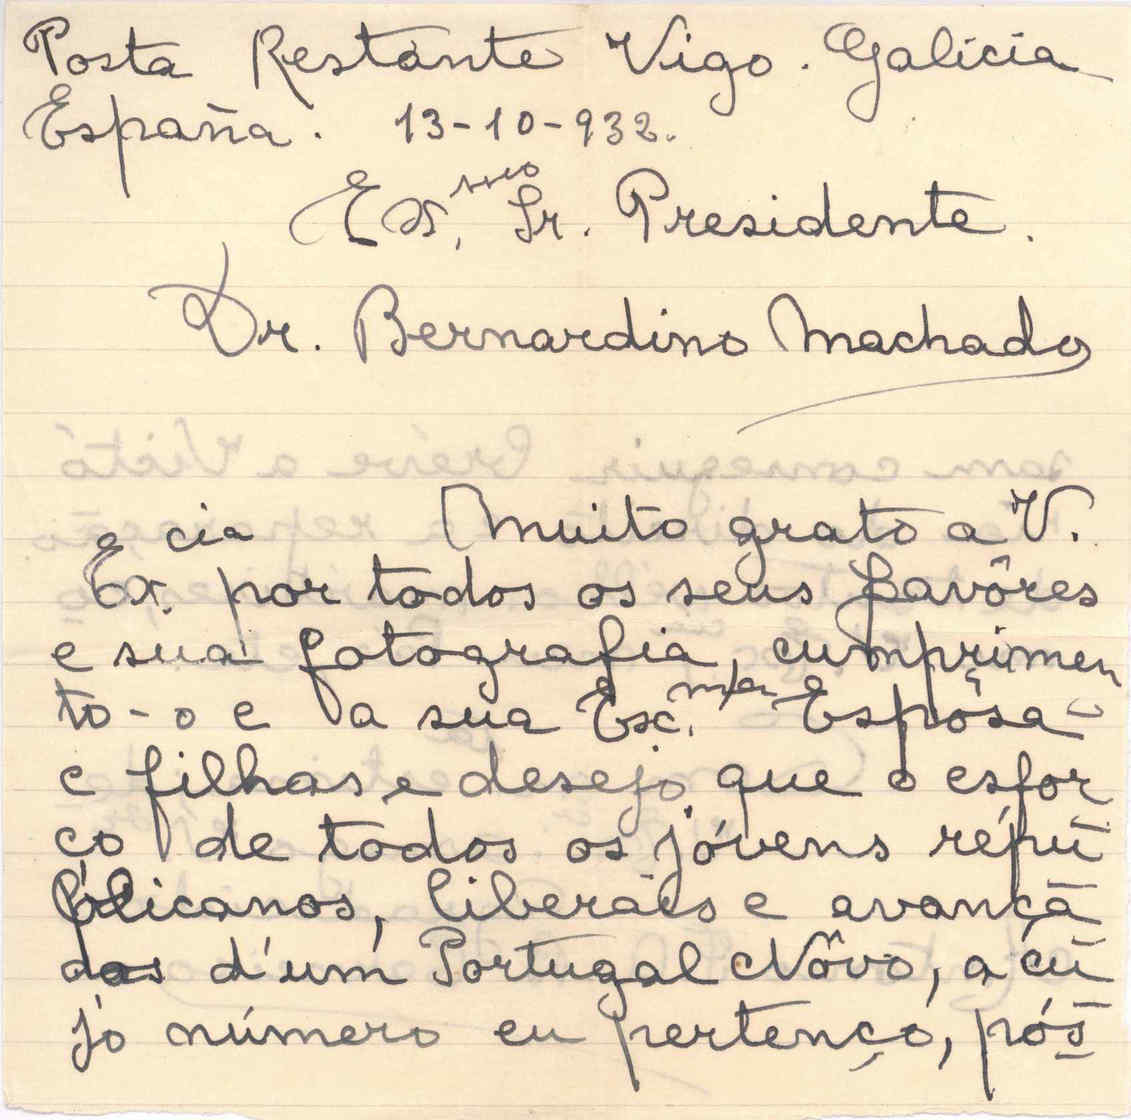 Posta Restante Vigo. Galicia
España. 13-10-932.
Ex.ssmo Sr. Presidente.
Dr. Bernardino Machado
Muito grato a V.
Ex.cia por todos os seus favôres
e sua fotografia, cumprimen
to-o e a sua Exc.ma Espôsa
e filhas e desejo que o esfor
ço de todos os jóvens repu
blicanos, liberáes e avança
dos d'um Portugal Nôvo, a cu
jo número eu pertenço, pós